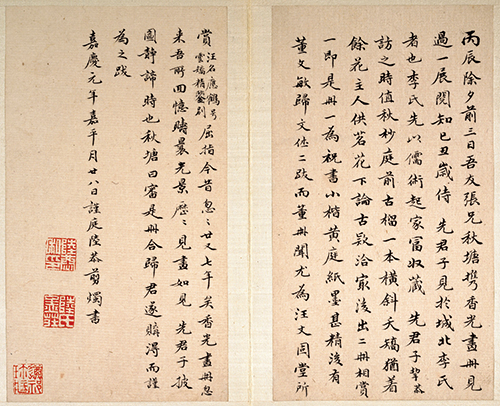 丙辰除夕前三日吾友張兄秋塘攜香光畫冊見
過一展閱知己丑歲侍 先君子見於城北李氏
者也李氏先以儒術起家富收藏 先君子挈恭
訪之時值秋杪庭前古榴一本橫斜夭矯猶著
餘花主人供茗花下論古款洽最後出二冊相賞
一即是冊一為祝書小楷黃庭紙墨甚精後有
董文敏歸文休二跋而董冊聞尤為汪文園堂所
賞
汪名應鶴号
雲矯精鑒別
屈指今昔忽〻廿又七年矣香光畫冊忽
來吾所回憶疇曩光景歷〻見畫如見 先君子披
圖靜諦時也秋塘曰審是冊合歸君遂購得而謹
為之跋
嘉慶元年嘉平月廿八日謹庭陸恭剪燭書